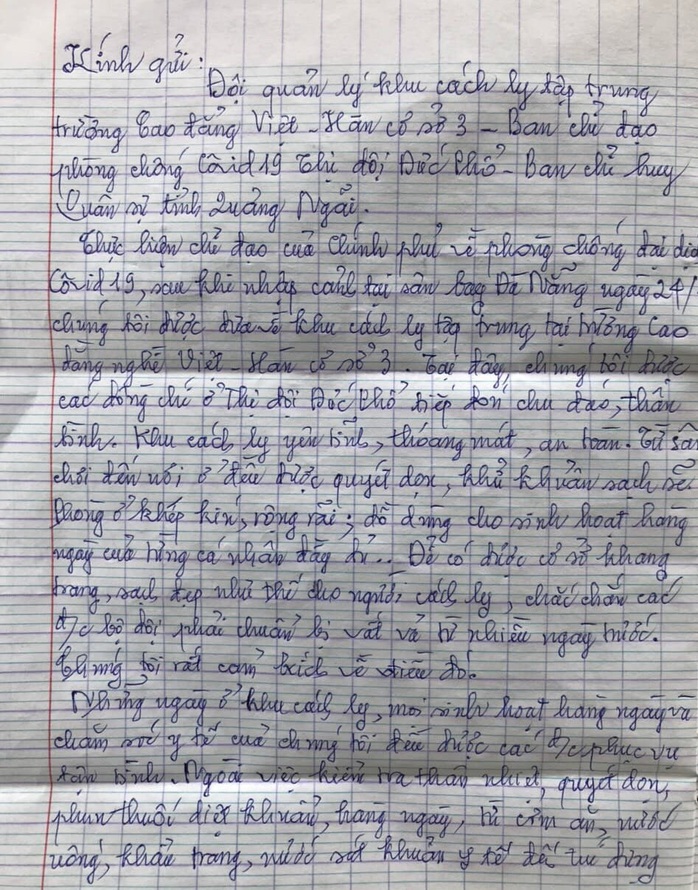 Kính gửi:
Đội quản lý khu cách ly tập trung
trường Cao đẳng Việt - Hàn cơ sở 3 - Ban chỉ đạo
phòng chống Côvid 19 Thị đội Đức Phổ - Ban chỉ huy
Quân sự tỉnh Quảng Ngãi.
Thực hiện chỉ đạo của Chính phủ về phòng chống đại dịc
Côvid 19, sau khi nhập cảnh tại sân bay Đà Nẵng ngày 24/
chúng tôi được đưa về khu cách ly tập trung tại trường Cao
đẳng nghề Việt - Hàn cơ sở 3. Tại đây, chúng tôi được
các đồng chí ở Thị đội Đức Phổ tiếp đón chu đáo, thân
tình. Khu cách ly yên tĩnh, thoáng mát, an toàn. Từ sân
chơi đến nơi ở đều được quyét dọn, khử khuẩn sạch sẽ.
Phòng ở khép kín, rộng rãi; đồ dùng cho sinh hoạt hàng
ngày của từng cá nhân đầy đủ... Để có được cơ sở khang
trang, sạch đẹp như thế cho người cách ly, chắc chắn các
đ/c bộ đội phải chuẩn bị vất vả từ nhiều ngày trước.
Chúng tôi rất cảm kích về điều đó.
Những ngày ở khu cách ly, mọi sinh hoạt hàng ngày và
chăm sóc y tế của chúng tôi đều được các đ/c phục vụ
tận tình. Ngoài việc kiểm tra thân nhiệt, quyét dọn,
phun thuốc diệt khuẩn, hàng ngày, từ cơm ăn, nước
uống, khẩu trang, nước sát khuẩn y tế đều túc dùng